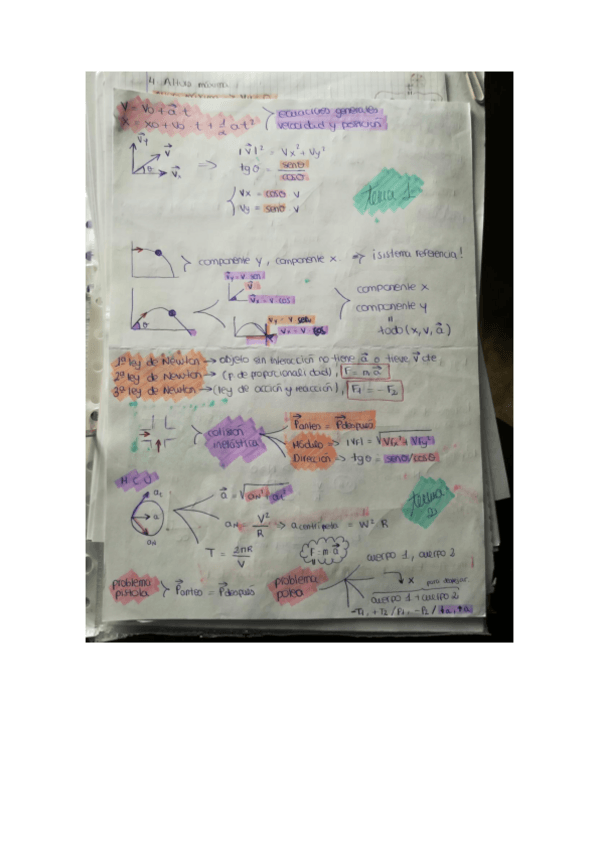 4. Altura máxima
V = Vo + a⃗ t
X = xo + vo · t + 1/2 at²
ecuaciones generales
velocidad y posición
V⃗y
V⃗
V⃗x
θ
⇒
|V⃗|² = Vx² + Vy²
tgθ = senθ/cosθ
Vx = cosθ · V
Vy = senθ · V
tema 1
componente y, componente x. ⇒ ¡sistema referencia!
Vy = V · senθ
V⃗
Vx = V · cosθ
θ
Vy = V senθ
Vx = V cosθ
componente x
componente y
todo (x, v, a⃗)
1ª ley de Newton → objeto sin interacción no tiene a⃗ o tiene v⃗ cte,
2ª ley de Newton → (p de proporcionalidad), F = m a⃗
3ª ley de Newton → (ley de acción y reacción), F1 = - F2
colisión
inelástica
P⃗antes = P⃗después
Módulo → |Vf| = √Vfx² + Vfy²
Dirección → tgθ = senθ/cosθ
M C U
at
a
aN
a⃗ = √aN² + at²
aN = V²/R ⇒ acentrípeta = W² R
tema
2
T = 2πR/V
F = m a⃗
cuerpo 1, cuerpo 2
problema
pistola
P⃗antes = P⃗después
problema
polea
x para despejar
cuerpo 1 + cuerpo 2